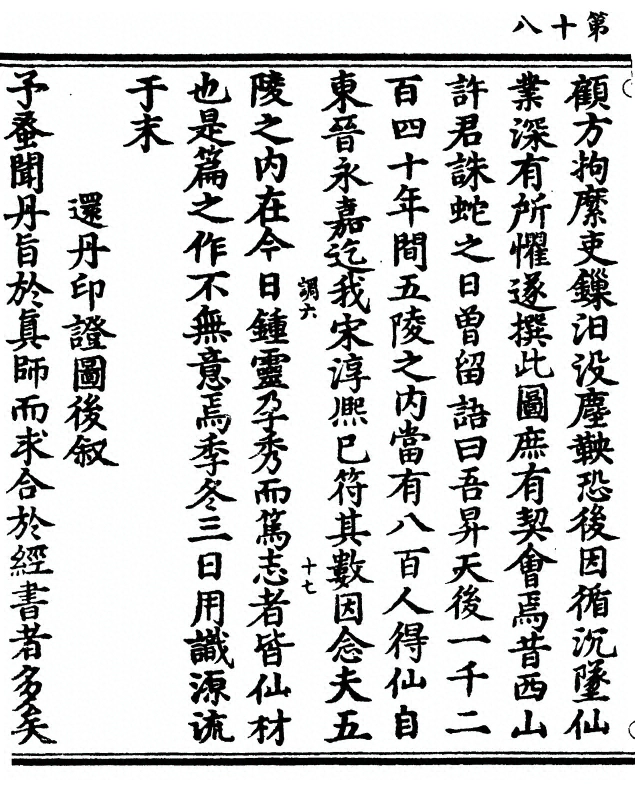 第十八
顧方拘縻吏鏁汩没塵鞅恐後因循沉墜仙
業深有所懼遂撰此圖庶有契會焉昔西山
許君誅蛇之日曾留語曰吾昇天後一千二
百四十年間五陵之内當有八百人得仙自
東晉永嘉迄我宋淳熙已符其數因念夫五
調六
十七
陵之内在今日鍾靈孕秀而篤志者皆仙材
也是篇之作不無意焉季冬三日用識源流
于末
還丹印證圖後叙
予蚤聞丹旨於真師而求合於經書者多矣